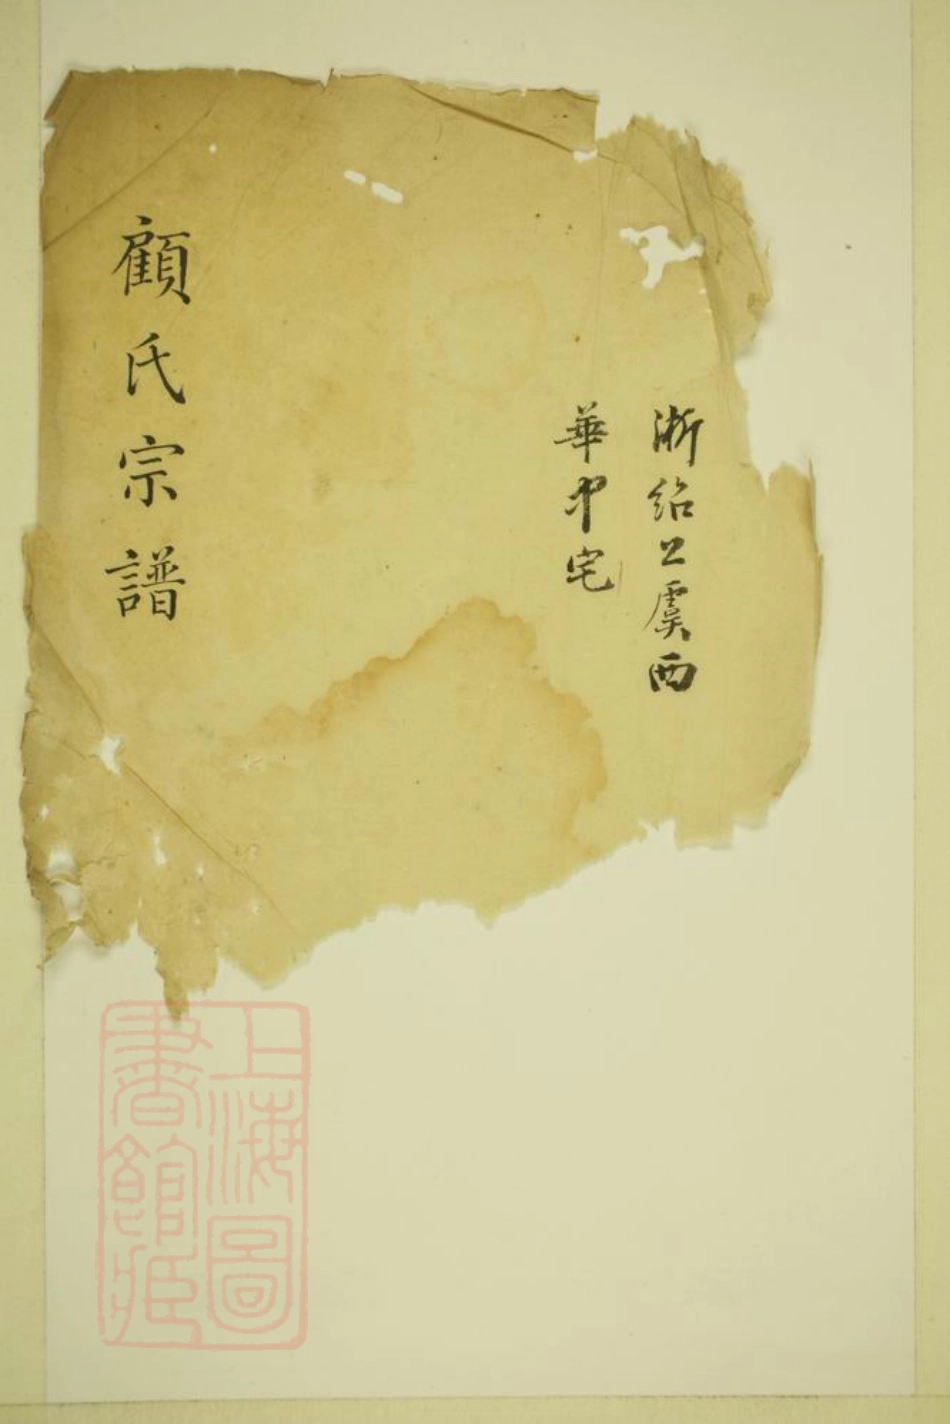 浙紹上虞西
華中宅
顧氏宗譜
上海圖
書館藏